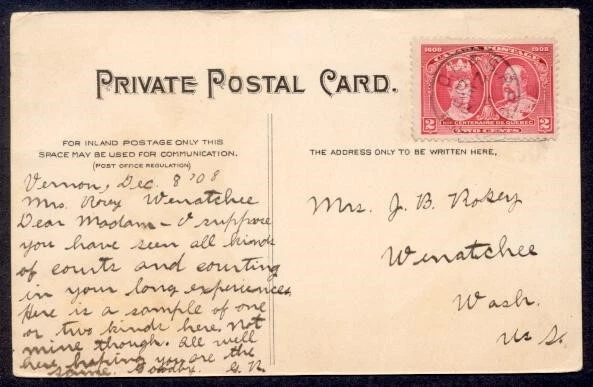 1608 CANADA POSTAGE 1908
IIIE CENTENAIRE DE QUEBEC
2 TWO CENTS 2
PRIVATE POSTAL CARD.
FOR INLAND POSTAGE ONLY THIS
SPACE MAY BE USED FOR COMMUNICATION.
(POST OFFICE REGULATION)
THE ADDRESS ONLY TO BE WRITTEN HERE,
Vernon, Dec. 8 '08
Mrs. Wenatchee
Dear Madam - I suppose
you have seen all kinds
of courts and courting
in your long experiences
Here is a sample of one
or two kinds here. Not
mine though. All well
here hoping you are the
same. Goodby. G. R.
Mrs. J. B.
Wenatchee
Wash.
U S.